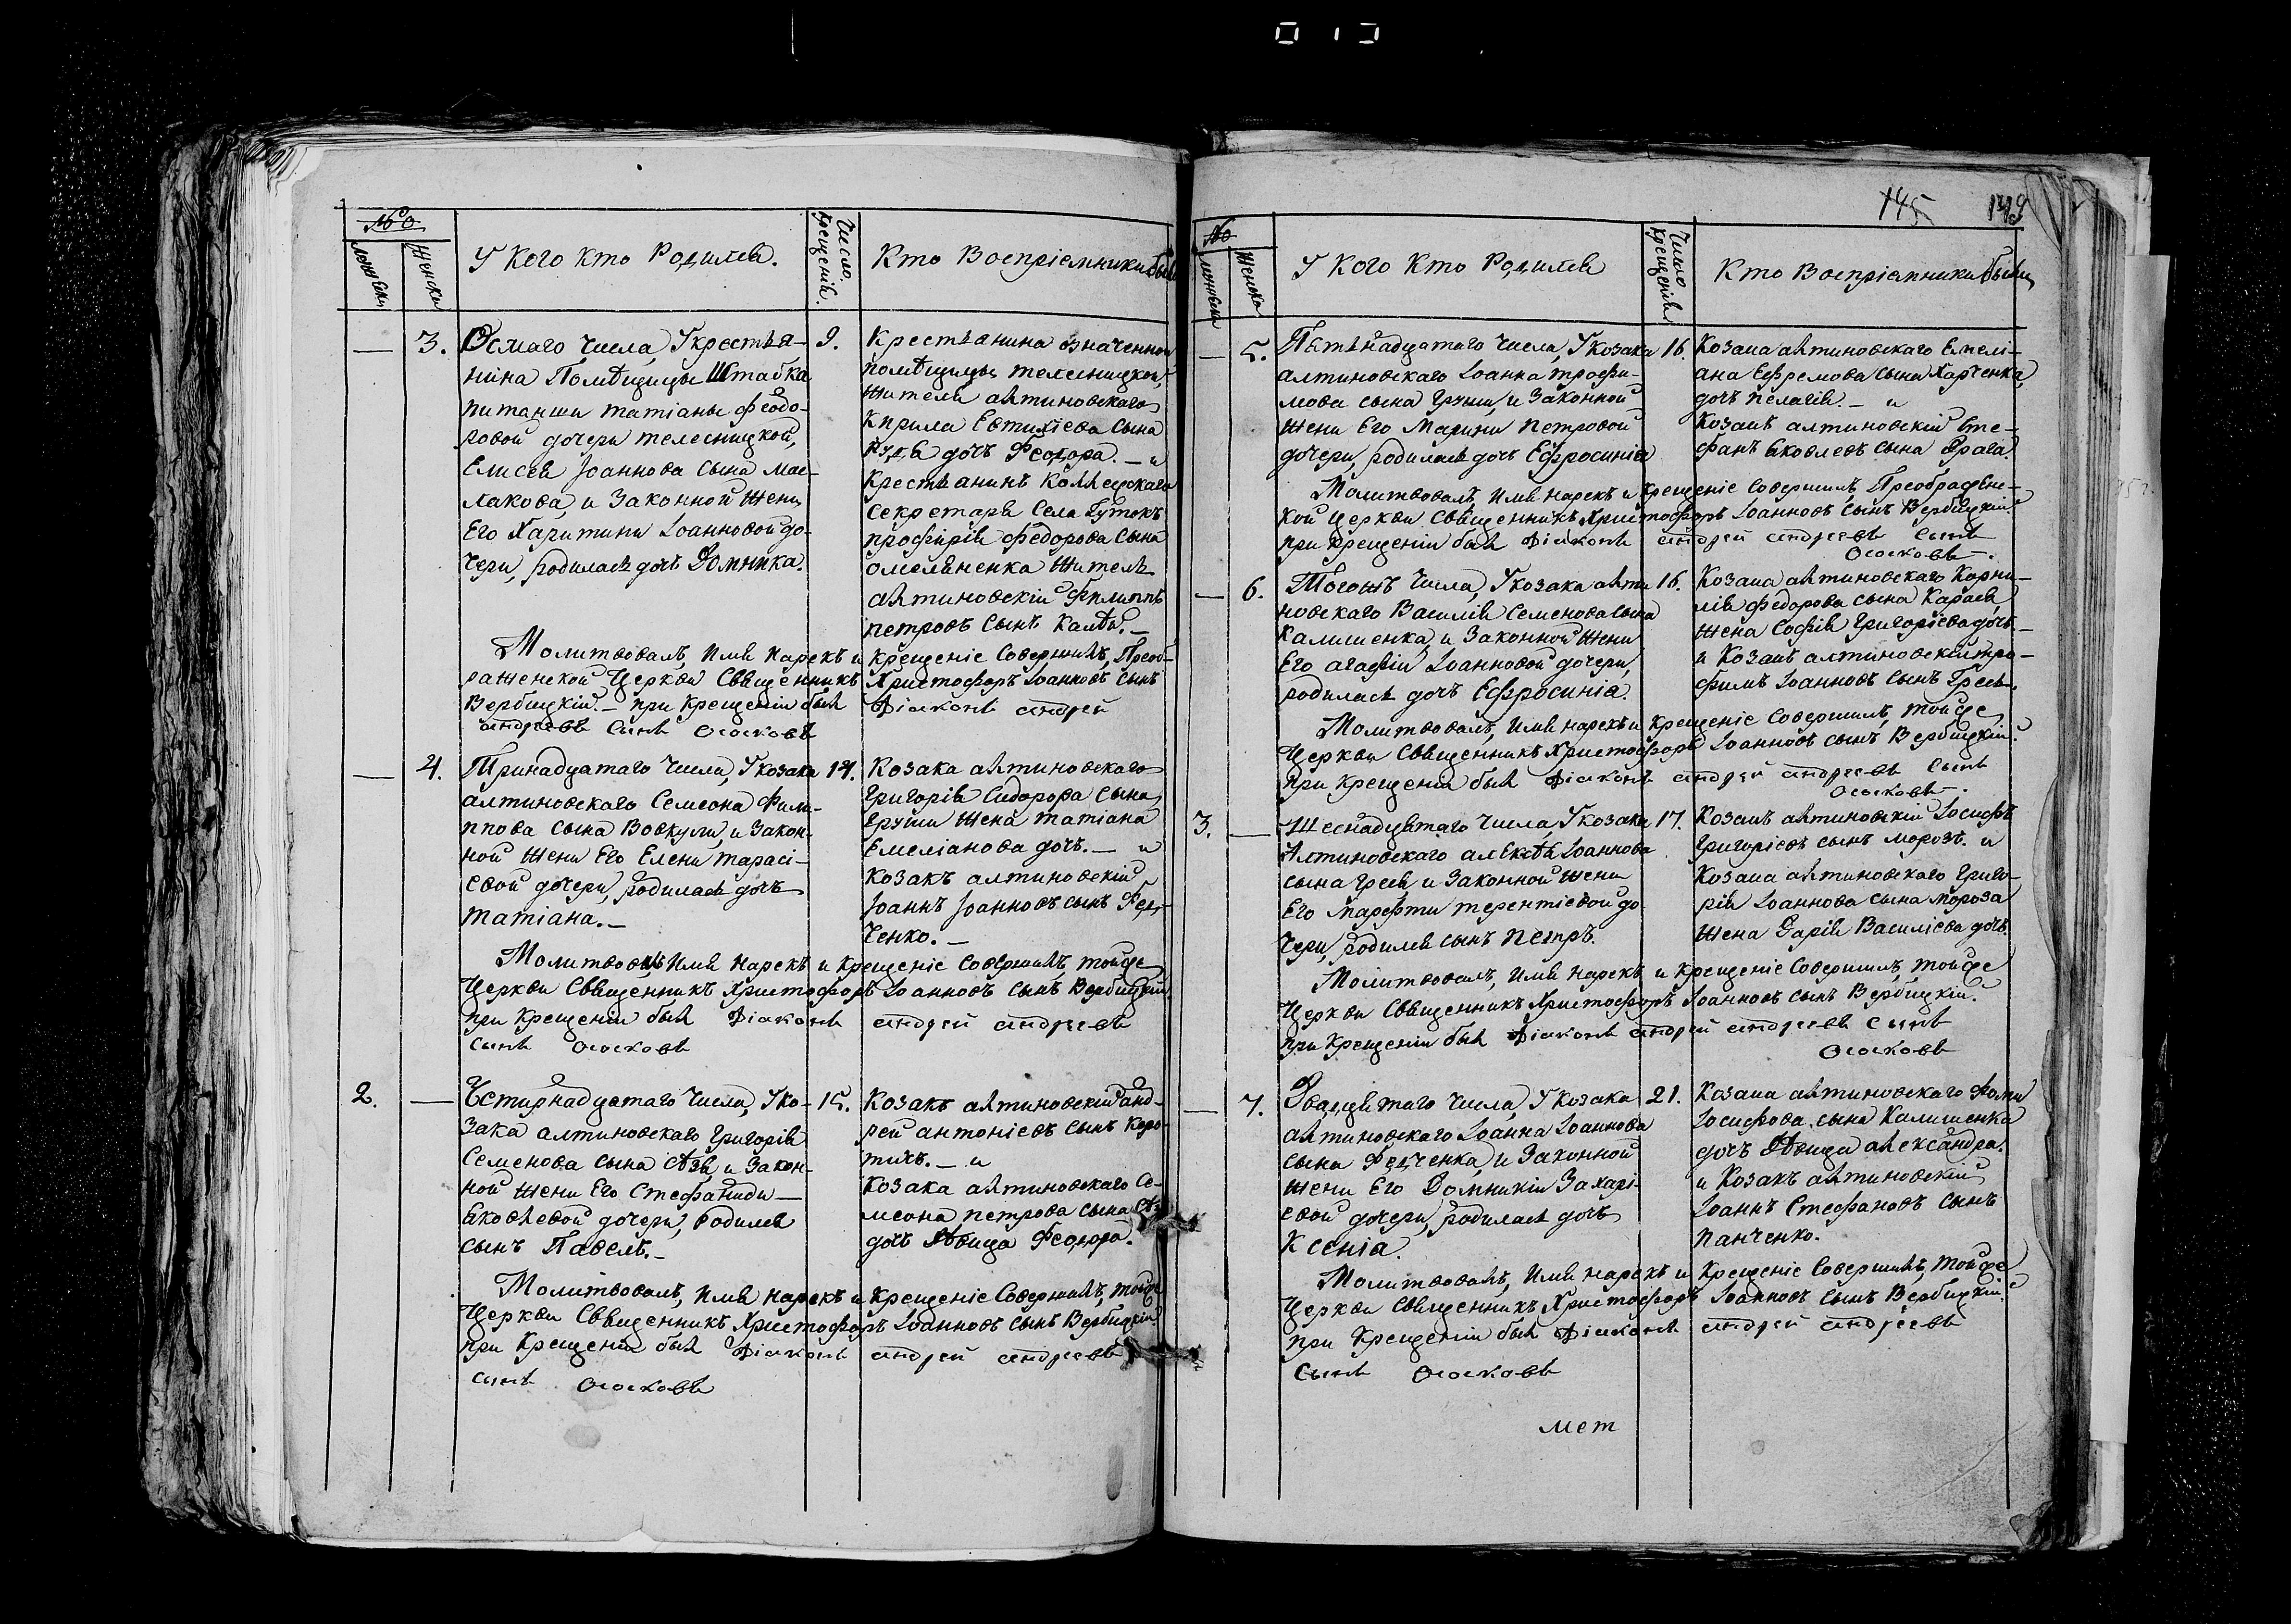 №
мужеска
женска
У Кого Кто Родился.
Число крещенія.
Кто Воспріемники были
— 3.
Осмаго Числа, У крестья-
нина Помѣщицы Штабка
питанши татіаны Феодо-
ровой дочери телесницкой,
Елисея Іоаннова сына Мас-
лакова, и Законной жены
Его Харитины Іоанновой до-
чери, родилась дочь Домника.
9.
Крестьянина означенной
помѣщицы телесницкой,
жителя алтиновского
Кирила Евтихіева сына
дочь Феодора. — и
Крестьянинъ Коллежскаго
секретаря Села Гутокъ
профирія Федорова сына
омеляненка житель
алтиновскій Филиппъ
петровъ сынъ —
Молитвовалъ, Имя нарекъ и крещеніе Совершилъ, Преоб-
раженской Церкви Священникъ Христофоръ Іоанновъ сынъ
Вербицкій. — при крещеніи былъ Діаконъ андрей
андреевъ сынъ Ососковъ
— 4.
Тринадцатаго Числа, У козака
алтиновскаго Семеона Фили-
ппова сына Вовкули, и Закон-
ной жены Его Елены тарасі-
евой дочери, родилась дочь
татіана. —
14.
Козака алтиновскаго
Григорія Сидорова сына,
Груши жена татіана
Емеліанова дочь. — и
козакъ алтиновскій
Іоаннъ Іоанновъ сынъ Фед-
ченко. —
Молитвовалъ Имя нарекъ и крещеніе совершилъ, тойже
Церкви Священникъ Христофоръ Іоанновъ сынъ Вербицкій.
при крещеніи былъ Діаконъ андрей андреевъ
сынъ Ососковъ
2. —
Четырнадцатаго Числа, У ко-
зака алтиновскаго Григорія
Семенова сына и Закон-
ной жены Его Стефаниды —
Яковлевой дочери, родился
сынъ Павелъ. —
15.
Козакъ алтиновскій Анд-
рей антоніевъ сынъ Коро-
тичъ. — и
козака алтиновскаго Се-
меона петрова сына
дочь дѣвица Феодора.
Молитвовалъ, Имя нарекъ и крещеніе Совершилъ, тойже
Церкви Священникъ Христофоръ Іоанновъ сынъ Вербицкій.
при крещеніи былъ Діаконъ андрей андреевъ
сынъ Ососковъ
145 149
№
мужеска
женска
У Кого Кто Родился
Число крещенія
Кто Воспріемники были
— 5.
Пятьнадцатаго Числа, У козака
алтиновскаго Іоанна трофи-
мова сына Груши, и Законной
жены Его Марины петровой
дочери, родилась дочь Ефросинія
16.
Козака алтиновскаго Емелі-
ана Ефремова сына Харченка
дочь пелагія. — и
Козакъ алтиновскій Сте-
фанъ Яковлевъ сына
Молитвовалъ, Имя нарекъ и крещеніе Совершилъ, Преображенс-
кой Церкви Священникъ Христофоръ Іоанновъ сынъ Вербицкій
при крещеніи былъ Діаконъ андрей андреевъ сынъ
Ососковъ.
— 6.
Тогожъ Числа, У козака алти-
новскаго Василія Семенова сына
Калишенка, и Законной жены
Его агафіи Іоанновой дочери,
родилась дочь Ефросинія.
16.
Козака алтиновскаго Корни-
лія Федорова сына Карася
жена Софія Григоріева дочь —
и Козакъ алтиновскій тро-
фимъ Іоанновъ сынъ
Молитвовалъ, Имя нарекъ и крещеніе Совершилъ, тойже
Церкви Священникъ Христофоръ Іоанновъ сынъ Вербицкій.
при крещеніи былъ Діаконъ андрей андреевъ сынъ
Ососковъ.
3. —
Шеснадцятаго Числа, У козака
Алтиновскаго алексѣя Іоаннова
сына и Законной жены
Его Марфы терентіевой до
чери, родился сынъ петръ.
17.
Козакъ алтиновскій Іосифъ
Григоріевъ сынъ морозъ. и
Козака алтиновскаго Григо-
рія Іоаннова сына Мороза
жена Дарія Василіева дочь.
Молитвовалъ, Имя нарекъ и крещеніе Совершилъ, тойже
Церкви Священникъ Христофоръ Іоанновъ сынъ Вербицкій.
при крещеніи былъ Діаконъ андрей андреевъ сынъ
Ососковъ
— 7.
Двадцятаго Числа, У козака
алтиновскаго Іоанна Іоаннова
сына Федченка, и Законной
жены Его Домникіи Захарі-
евой дочери, родилась дочь
Ксенія.
21.
Козака алтиновскаго Фомы
Іосифова сына Калишенка
дочь дѣвица александра.
и Козакъ алтиновскій
Іоаннъ Стефановъ сынъ
панченко.
Молитвовалъ, Имя нарекъ и крещеніе Совершилъ, тойже
Церкви Священникъ Христофоръ Іоанновъ сынъ Вербицкій.
при крещеніи былъ Діаконъ андрей андреевъ
сынъ Ососковъ
мет